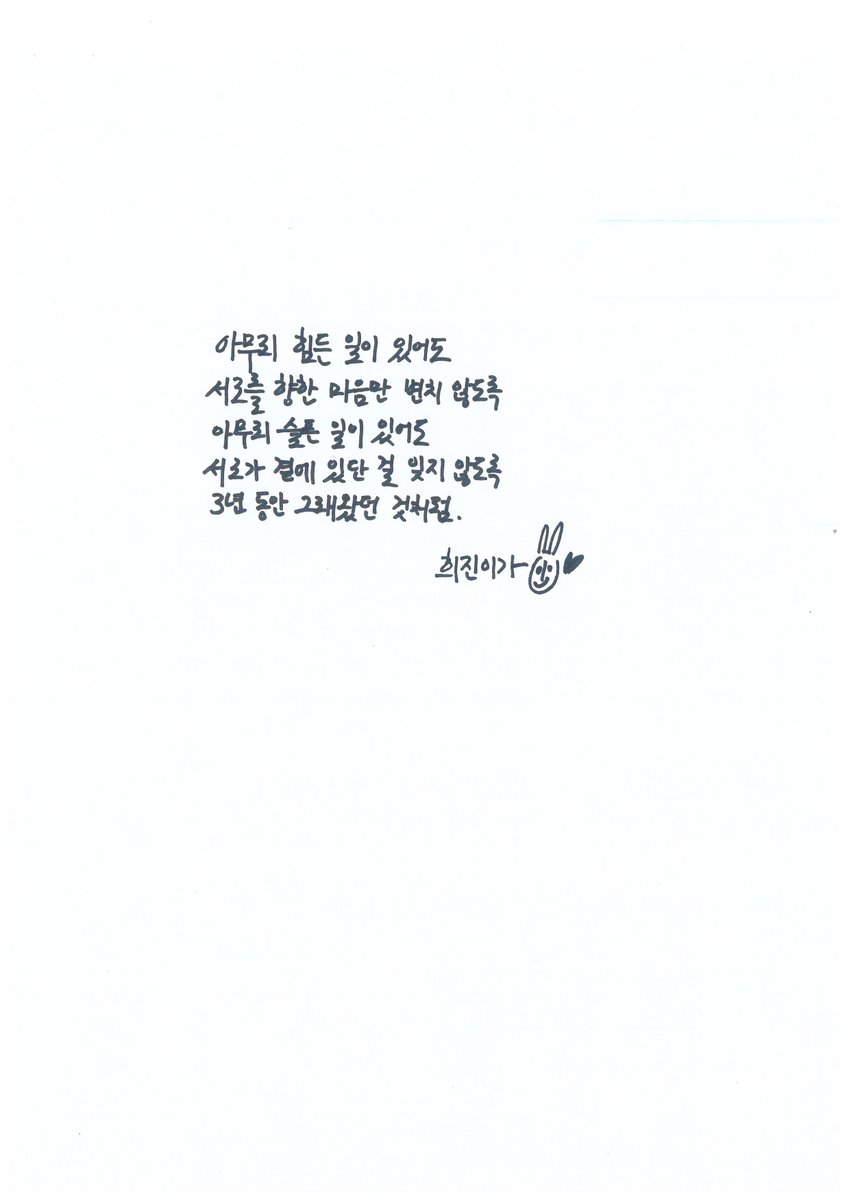 아무리 힘든 일이 있어도
서로를 향한 마음만 변치 않도록
아무리 슬픈 일이 있어도
서로가 곁에 있단 걸 잊지 않도록
3년 동안 그래왔던 것처럼.
희진이가